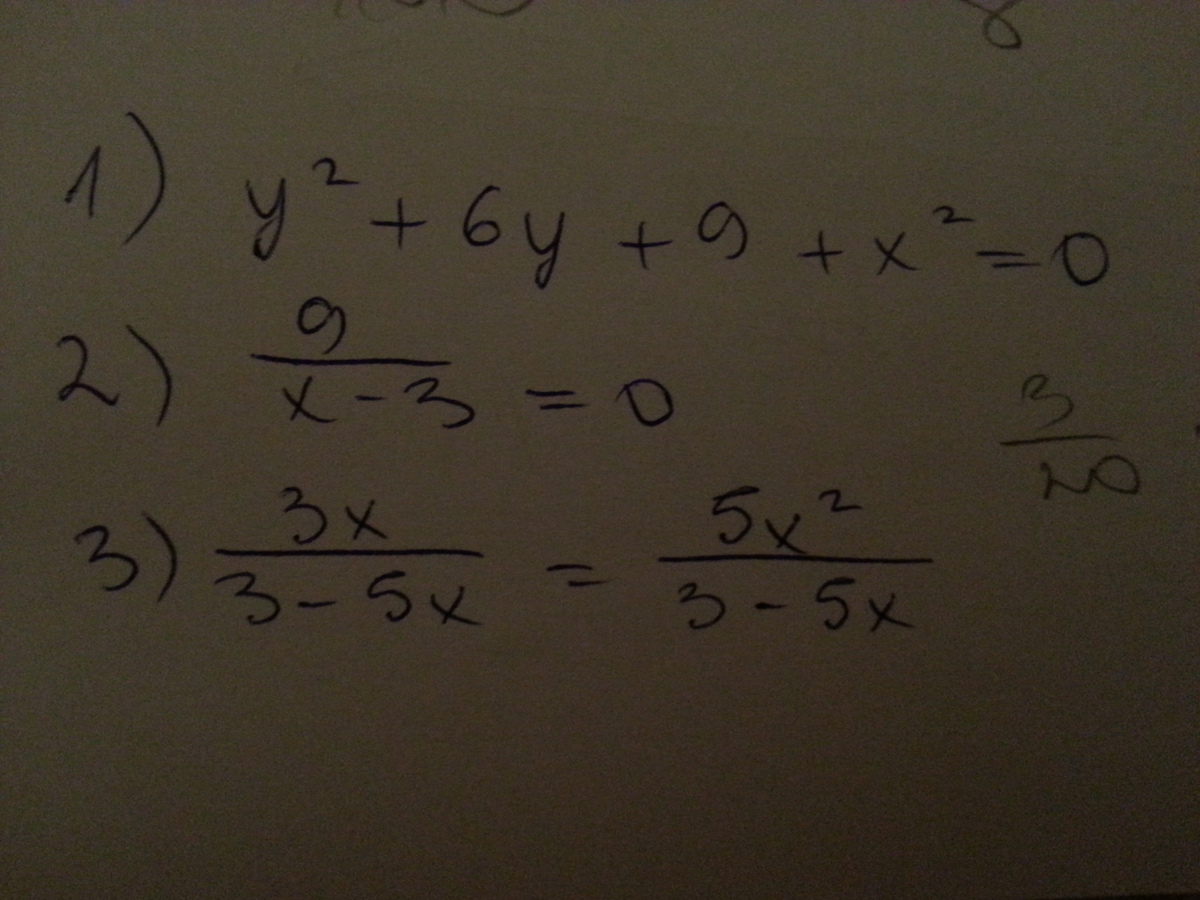 1) y² + 6y + 9 + x² = 0
2) 9/(x - 3) = 0
3/20
3) 3x/(3 - 5x) = 5x²/(3 - 5x)